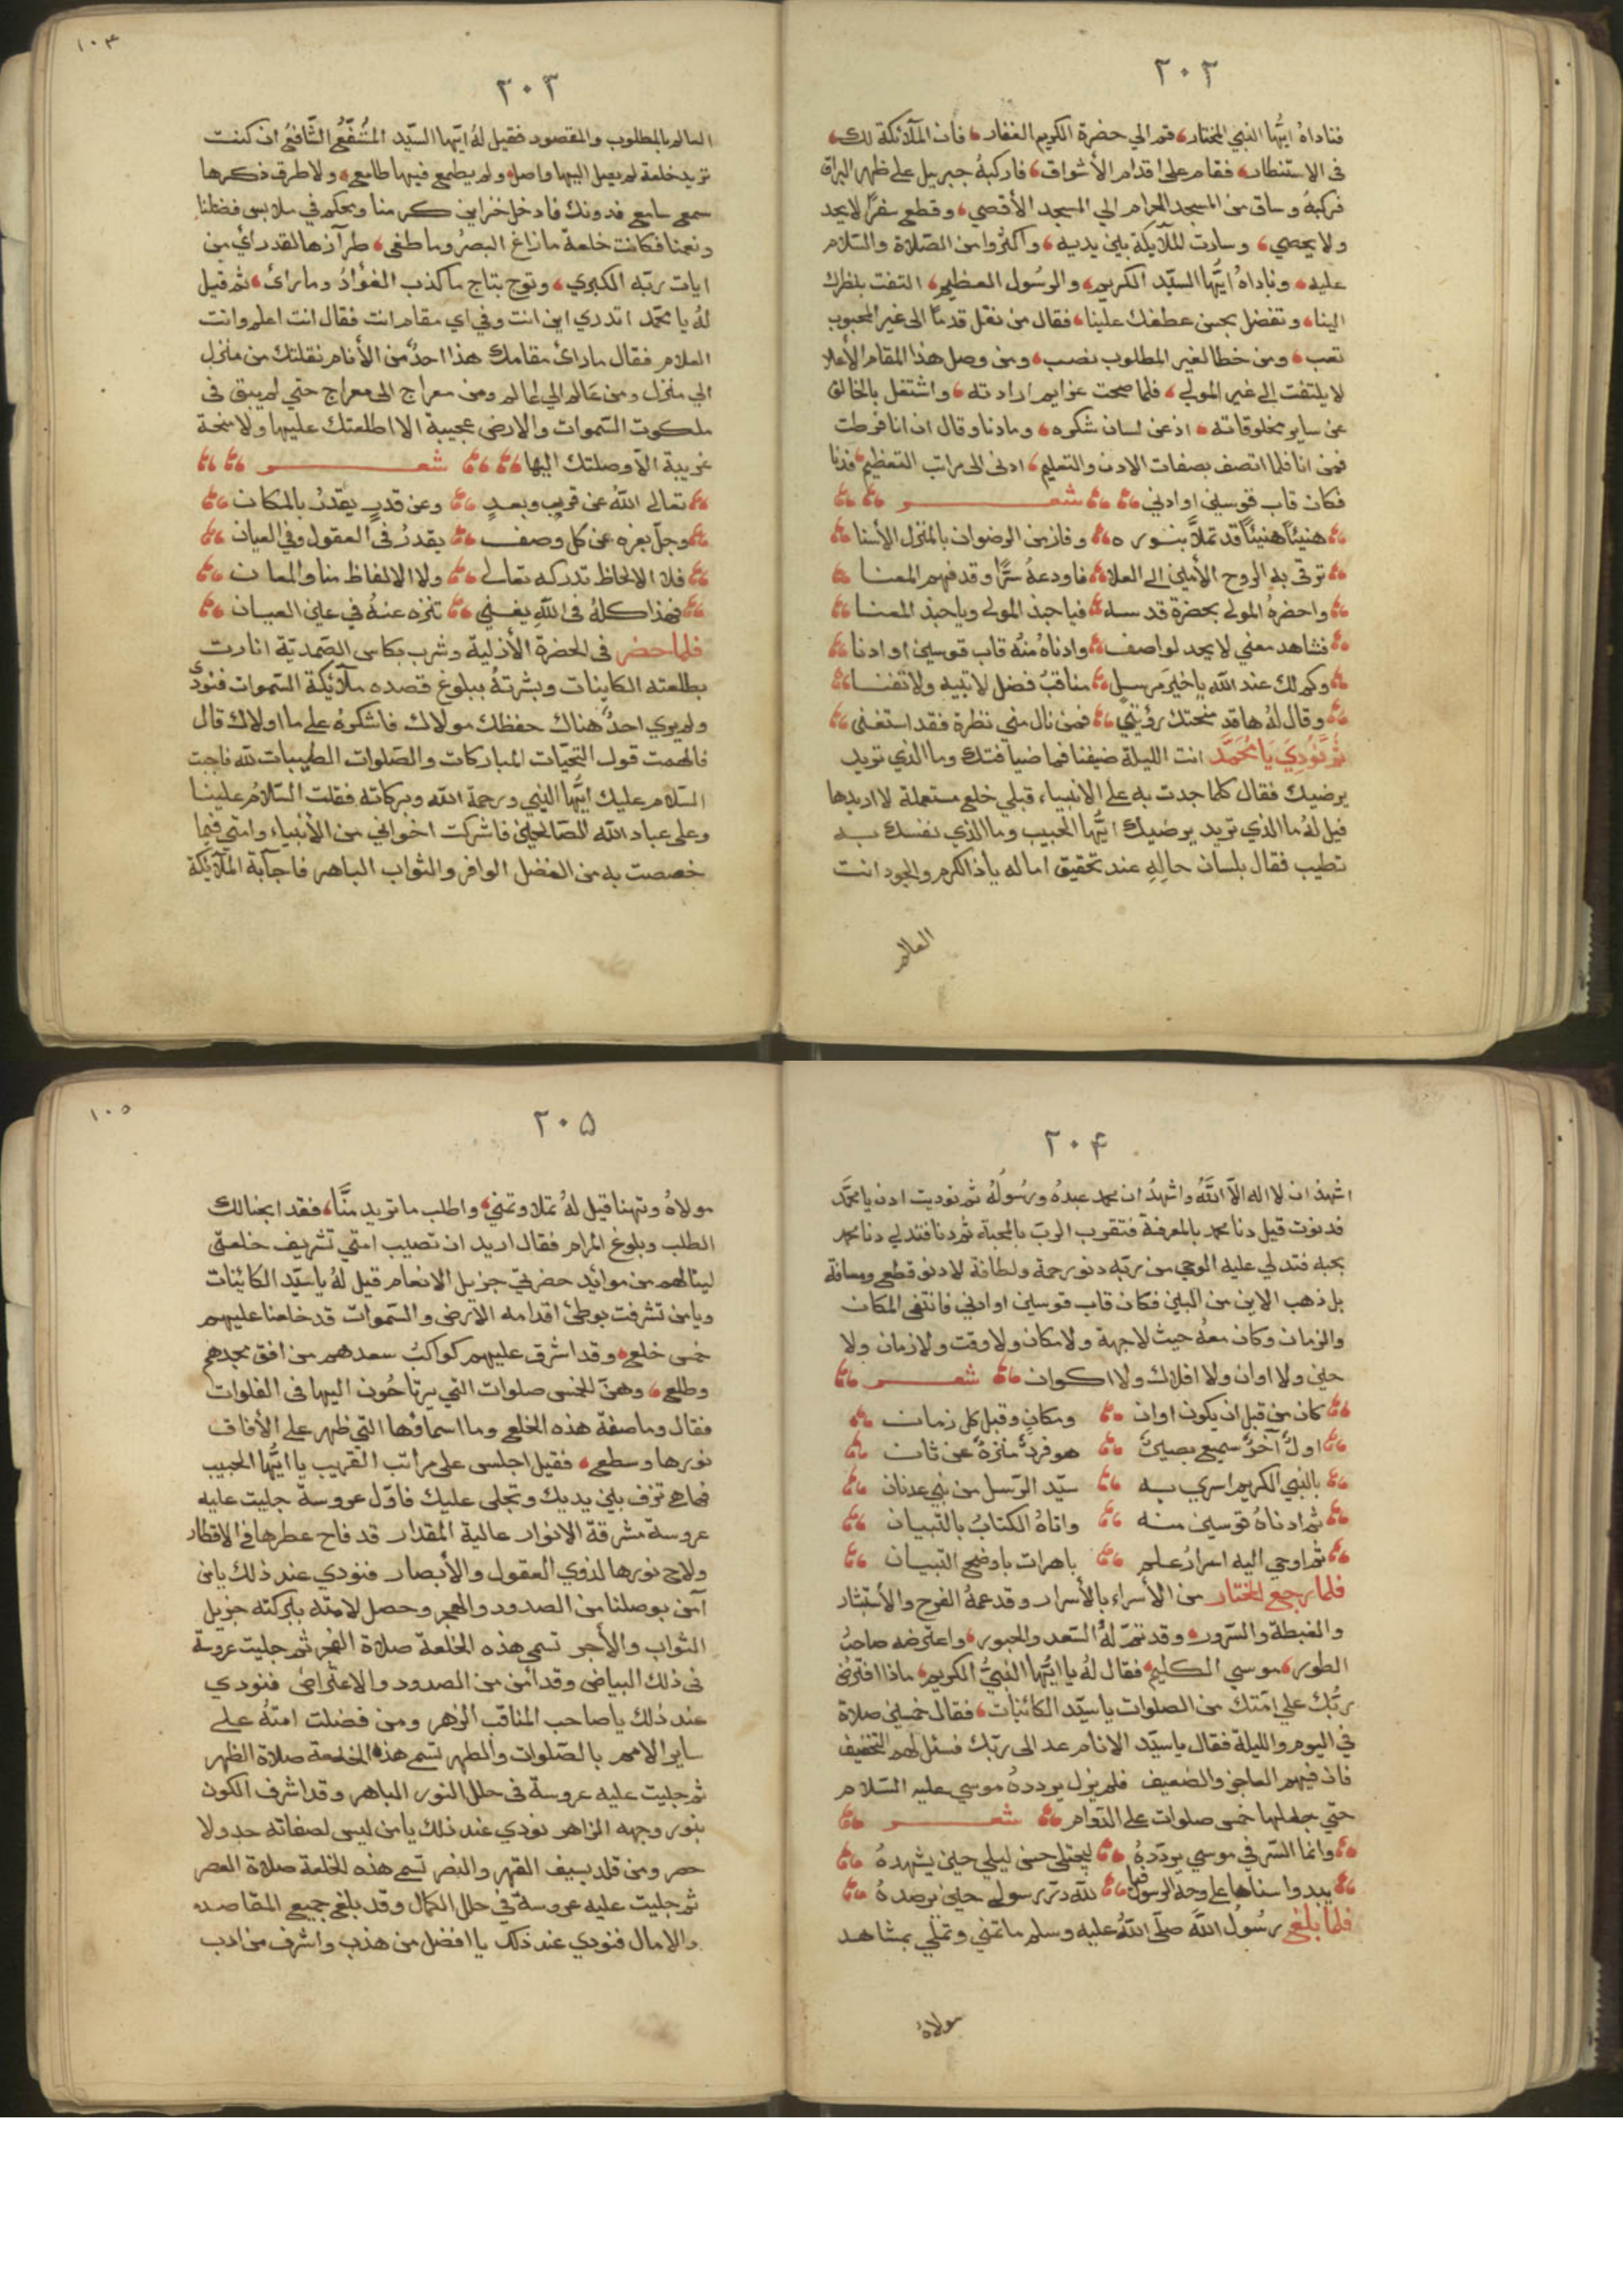 ٢٠٢
فناداهُ ايُّها النبي المختار، قم الي حضرة الكريم الغفار، فان الملآئكة لك،
فى الاستنظار، فقام على اقدام الأشواق، فاركبهُ جبريل على ظهر البراق
فركبهُ وساق من المسجد الحرام الي المسجد الأقصي، وقطع سفرًا لايحد
ولا يحصي، وسارت الملآيكة بين يديه، واكثروا من الصّلاة والسّلام
عليه، وناداهُ ايُّها السيّد الكريم، والرسُول العظيم، التفت بنظرك
الينا، وتفضل بحسن عطفك علينا، فقال من نقل قدمًا الى غير المحبوب
تعب، ومن خطا لغير المطلوب نصب، ومن وصل هذا المقام الأعلا
لا يلتفت الى غير المولي، فلما صحت عزايم ارادته، واشتغل بالخالق
عن ساير مخلوقاته، اذعن لسان شكره، ومادنا وقال ان انا فرطت
فمن انا فلما اتصف بصفات الادب والتعليم، ادنى الى مراتب التعظيم، فدنا
فكان قاب قوسين او ادني شعر
هنيئًا هنيئًا قد تملّا بنوره وفاز من الرضوان بالمنزل الأسنا
ترقى به الروح الأمين الى العلا فاودعهُ سرًّا وقد فهم المعنا
واحضرهُ المولى بحضرة قدسه فياحبذ المولى وياحبذ المعنا
فشاهد معني لا يحد لواصف وادناهُ منهُ قاب قوسين او ادنا
وكم لك عند الله ياخير مرسل مناقبُ فضل لا تبيد ولا تفنا
وقال لهُ هاقد منحتك رؤيتي فمن نال مني نظرة فقد استغنى
ثُمَّ نُودِيَ يَا مُحَمَّد انت الليلة ضيفنا فما ضيافتك وما الذي تريد
يرضيك فقال كلما جدت به على الانبياء قبلي خلع مستعملة لا اريدها
قيل لهُ ما الذي تريد يرضيك ايُّها الحبيب وما الذي نفسك به
تطيب فقال بلسان حالِهِ عند تحقيق اماله ياذا الكرم والجود انت
العالم
١٠٣
٢٠٣
العالم بالمطلوب والمقصود فقيل لهُ ايّها السّيّد المُشَفّعُ الشَّافعُ ان كنت
تريد خلعة لم يصل اليها واصل، ولم يطمع فيها طامع، ولا طرق ذكرها
سمع سامع فدونك فادخل خزاين كرمنا وتحكم في ملابس فضلنا
ونعمنا فكانت خلعة مازاغ البصرُ وما طغى، طرآزها لقد رأي من
ايات ربّه الكبري، وتوج بتاج ما كذب الفؤادُ ومارأى، ثم قيل
لهُ يا محمّد اتدري اين انت وفي اي مقام انت فقال انت اعلم وانت
العلام فقال مارأى مقامك هذا احدٌ من الأنام نقلتك من منزل
الي منزل ومن عَالم الي عالم ومن معراج الى معراج حتي لم يبق فى
ملكوت السّموات والارض عجيبة الا اطلعتك عليها ولا منحة
غريبة الاّ وصلتك اليها شعر
تعالى اللهُ عن قربٍ وبعدٍ وعن قدرٍ يقدرُ بالمكان
وجلّ بعزه عن كل وصف يقدرُ فى العقول وفى العيان
فلا الالحاظ تدركه تعالى ولا الالفاظ منا والمعان
فهذا كلهُ فى اللهِ يفني تنزه عنهُ في عين العيان
فلما حضر فى الحضرة الأزلية وشرب بكاس الصّمديّة انارت
بطلعته الكاينات وبشرتهُ ببلوغ قصده ملآئيكة السّموات فنودىُ
ولم يري احدٌ هناك حفظك مولاك فاشكرهُ على ما اولاك قال
فالهمت قول التحيّات المباركات والصّلوات الطيبات لله فاجبت
السّلام عليك ايُّها النبي ورحمة الله وبركاته فقلت السّلامُ علينا
وعلى عباد الله الصّالحين فاشركت اخواني من الأنبياء وامتي فيما
خصصت به من الفضل الوافر والثواب الباهر فاجآبة الملآئيكة
٢٠۴
اشهدُ ان لا اله الاّ اللهُ واشهدُ ان محمد عبدهُ ورسُولهُ ثم نوديت ادن يا محمَّد
فدنوت قيل دنا محمد بالمعرفة فتقرب الربّ بالمحبة، ثم دنا فتدلي دنا محمد
بحبه فتدلي عليه الوحي من ربّه دنو رحمة ولطافة لادنو قطع ومسافة
بل ذهب الاين من البين فكان قاب قوسين او ادني فانتفى المكان
والزمان وكان معهُ حيث لا جهة ولا مكان ولا وقت ولا زمان ولا
حين ولا اوان ولا افلاك ولا اكوان شعر
كان من قبل ان يكون اوان ومكانٍ وقبل كل زمان
اولٌ آخرٌ سميع بصيرٌ هو فردٌ منزهٌ عن ثان
بالنبي الكريم اسري به سيّد الرّسل من بني عدنان
ثم ادناهُ قوسين منه واتاهُ الكتابُ بالتبيان
ثم اوحي اليه اسرارُ علم باهرات باوضح التبيان
فلما رجع المختار من الأسراء بالأسرار وقد عمهُ الفرح والأستبشار
والغبطة والسّرور، وقد تمّ لهُ السّعد والحبور، واعترضه صاحبُ
الطور، موسي الكليم، فقال لهُ يا ايُّها النبيُّ الكريم، ماذا افترضَ
ربُّك على امّتك من الصلوات ياسيّد الكائنات، فقال خمسين صلاة
في اليوم والليلة فقال ياسيّد الانام عد الى ربّك فسئل لهم التخفيف
فان فيهم العاجز والضعيف فلم يزل يرددهُ موسي عليه السّلام
حتي جعلها خمس صلوات على الدّوام شعر
وانما السّر في موسي يردّدهُ ليجتلي حسن ليلي حين يشهدهُ
يبدوا سناها على وجه الرسول فيا لله درّ رسولٍ حين يرصدهُ
فلما بلغ رسُولُ اللهِ صلّى اللهُ عليه وسلم ما تمني وتملّي بمشاهد
مولاهُ
١٠٥
٢٠۵
مولاهُ وتهنا قيل لهُ تملا وتمني، واطلب ما تريد منَّا، فقد ابحنا لك
الطلب وبلوغ المرام فقال اريد ان تصيب امتي تشريف خلعتى
لينالهم من موائد حضرتي جزيل الانعام قيل لهُ ياسيّد الكائنات
ويامن تشرفت بوطئ اقدامه الأرض والسّموات قد خلعنا عليهم
خمس خلع، وقد اشرق عليهم كواكبُ سعدهم من افق مجدهم
وطلع، وهنّ الخمس صلوات التي يرتاحُون اليها فى الفلوات
فقال وما صفة هذه الخلع وما اسماؤها التى ظهر على الأفاق
نورها وسطع، فقيل اجلس على مراتب التقريب يا ايُّها الحبيب
فها هي تزف بين يديك وتجلى عليك فاوّل عروسة جليت عليه
عروسة مشرقة الانوار عالية المقدار قد فاح عطرها فى الاقطار
ولاح نورها لذوي العقول والأبصار فنودي عند ذلك يا من
آمن بوصلنا من الصدود والهجر وحصل لامته ببركته جزيل
الثواب والأجر تسمي هذه الخلعة صلاة الفجر ثم جليت عروسة
فى ذلك البياض وقد أمن من الصدود والاعتراض فنودي
عند ذلك يا صاحب المناقب الزهر ومن فضلت امتهُ على
ساير الامم بالصّلوات والطهر تسم هذه الخلعة صلاة الظهر
ثم جليت عليه عروسة فى حلل النور الباهر وقد اشرف الكون
بنور وجهه الزاهر نودي عند ذلك يا من ليس لصفاته حد ولا
حصر ومن قلد بسيف القهر والنصر تسمي هذه الخلعة صلاة العصر
ثم جليت عليه عروسة في حلل الكمال وقد بلغ جميع المقاصد
والامال فنودي عند ذلك يا افضل من هذب واشرف من ادب